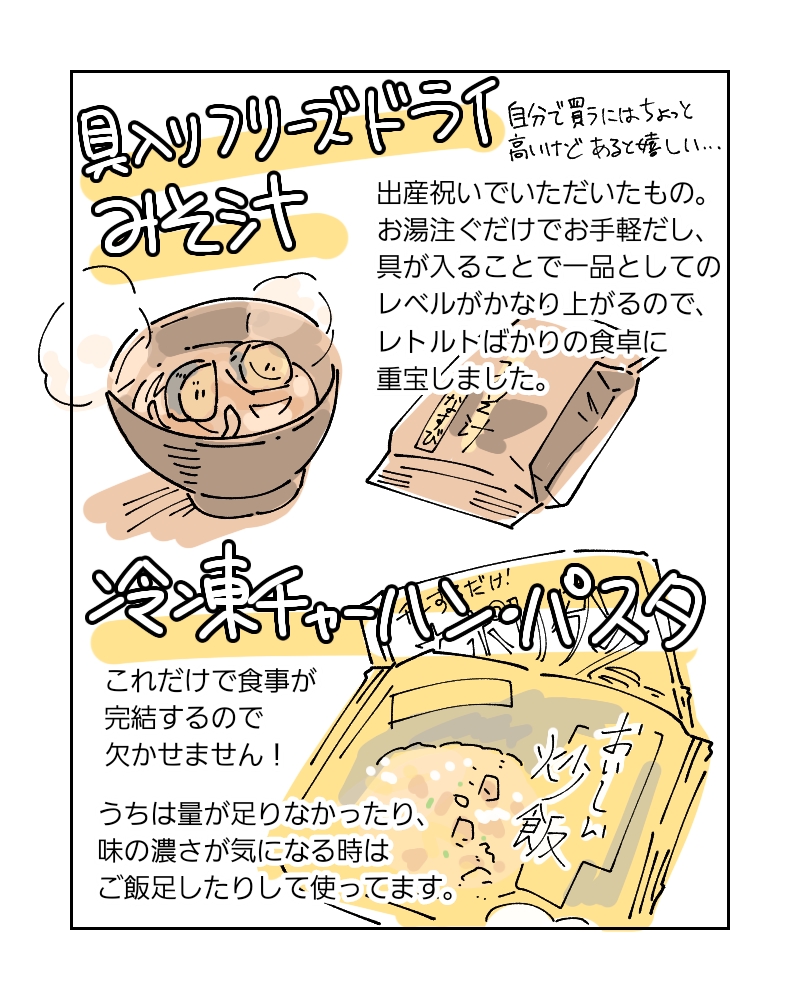 具入りフリーズドライ
みそ汁
自分で買うにはちょっと
高いけど あると嬉しい…
出産祝いでいただいたもの。
お湯注ぐだけでお手軽だし、
具が入ることで一品としての
レベルがかなり上がるので、
レトルトばかりの食卓に
重宝しました。
みそ汁
なすび
冷凍チャーハン・パスタ
だけ!
これだけで食事が
完結するので
欠かせません!
おいしい
炒飯
うちは量が足りなかったり、
味の濃さが気になる時は
ご飯足したりして使ってます。